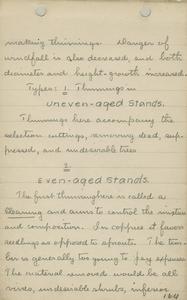 making thinnings. Danger of
windfall is also decreased, and both
diameter and height-growth increased.
Types: 1. Thinnings in
uneven-aged stands.
Thinnings here accompany the
selection cuttings, removing dead, sup-
pressed, and undesirable trees
2
Even-aged stands.
The first thinning here is called a
cleaning and aims to control the mixture
and composition. In coppice it favors
seedlings as opposed to sprouts. The tim-
ber is generally too young to pay expenses
The material removed would be all
vines, undesirable shrubs, inferior
164